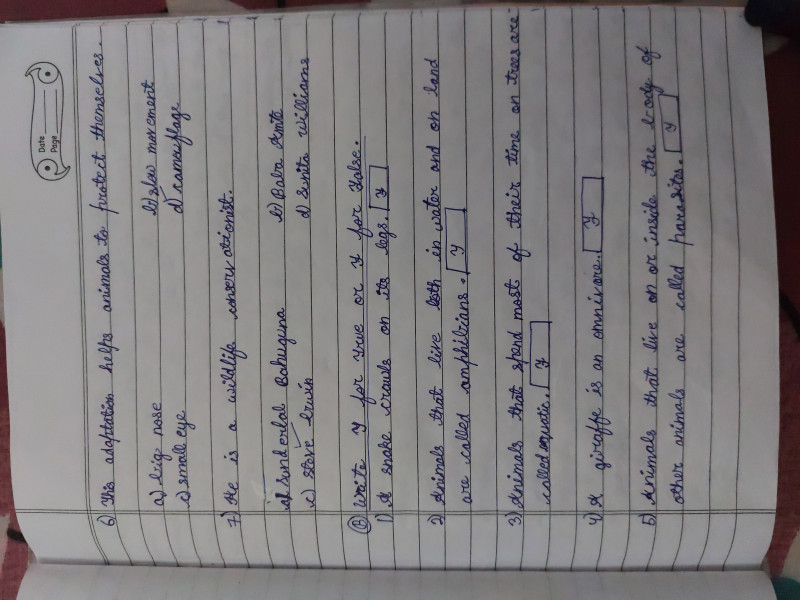 Date
Page
6) This adaptation helps animals to protect themselves.
a) big nose b) slow movement
c) small eye d) camouflage
7) He is a wildlife conservationist.
a) Sunderlal Bahuguna b) Baba Amte
c) Steve Erwin d) Sunita Williams
(B) Write T for True or F for False.
1) A snake crawls on its legs. F
2) Animals that live both in water and on land
are called amphibians. T
3) Animals that spend most of their time on trees are
called aquatic. F
4) A giraffe is an omnivore. F
5) Animals that live on or inside the body of
other animals are called parasites. T